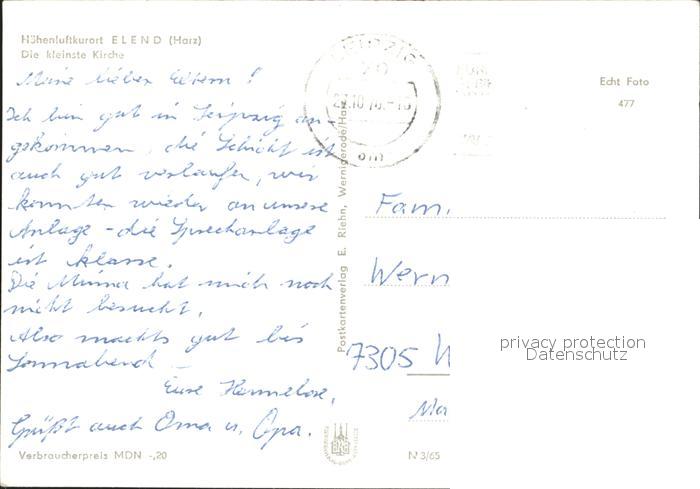 Höhenluftkurort ELEND (Harz)
Die kleinste Kirche
Meine lieben Eltern!
Ich bin gut in Leipzig an-
gekommen, die Schicht ist
auch gut verlaufen, wir
konnten wieder an unsere
Anlage - die Sprechanlage
ist klasse.
Die Mima hat mich noch
nicht besucht.
Also machts gut bis
Sonnabend -
Eure Hannelore.
Grüßt auch Oma u. Opa.
Verbraucherpreis MDN -,20
Postkartenverlag E. Riehn, Wernigerode/Harz
LEIPZIG
Echt Foto
477
Fam.
Wern
7305 W
Ma
privacy protection
Datenschutz
N 3/65